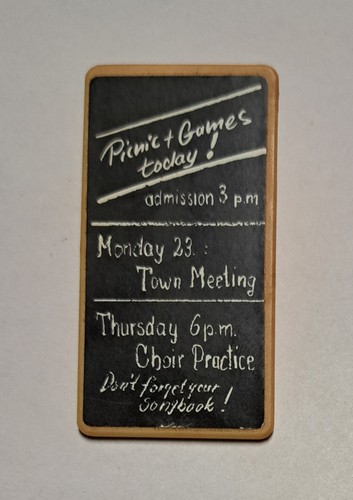 Picnic + Games
today!
admission 3 p.m
Monday 23. :
Town Meeting
Thursday 6 p.m.
Choir Practice
Don't forget your
songbook!